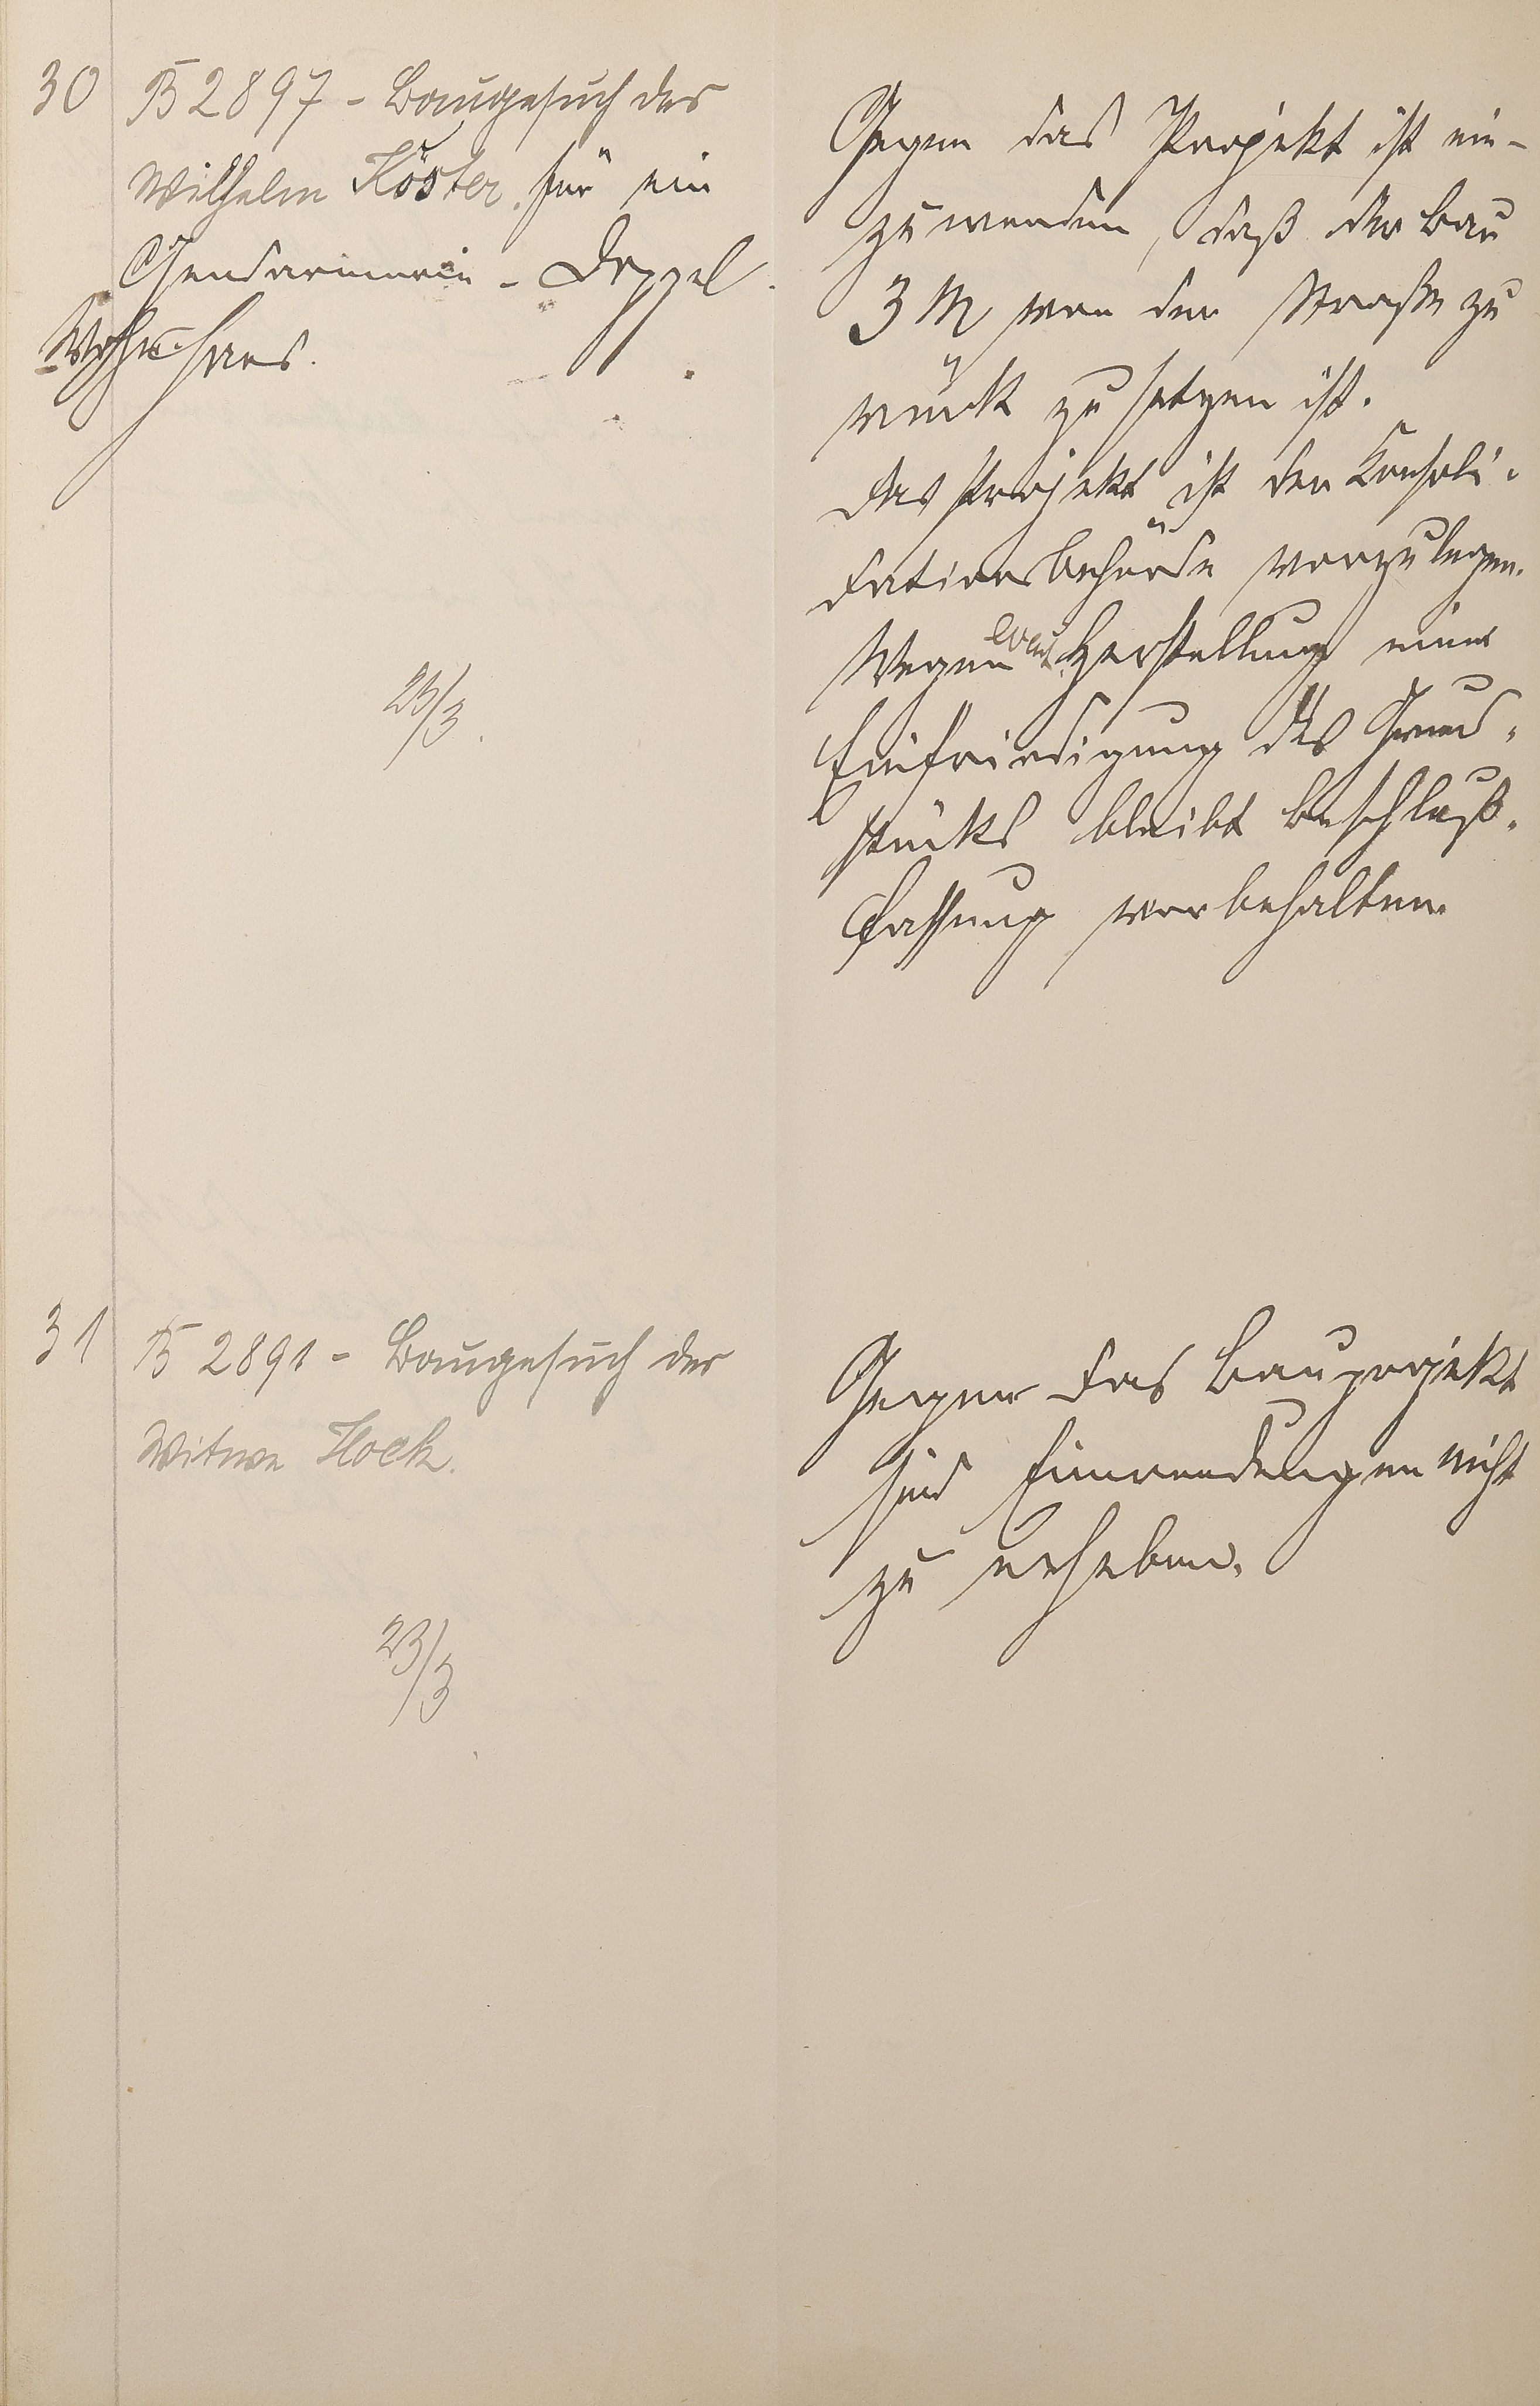 30
B 2897 - Baugesuch des
Wilhelm Köster für ein
Gendarmerie - Doppel-
Wohnhaus.
23/3.
Gegen das Projekt ist ein-
zuwenden, daß der Bau
3 M von der Straße zu
rück zu setzen ist.
Das Projekt ist der Konsoli-
dationsbehörde vorzulegen.
Wegen Herstellung einer
Einfriedigung des Grund-
stücks bleibt Beschluß-
fassung vorbehalten.
31
B 2891 - Baugesuch der
Witwe Hock.
23/3
Gegen das Bauprojekt
sind Einwendungen nicht
zu erheben.